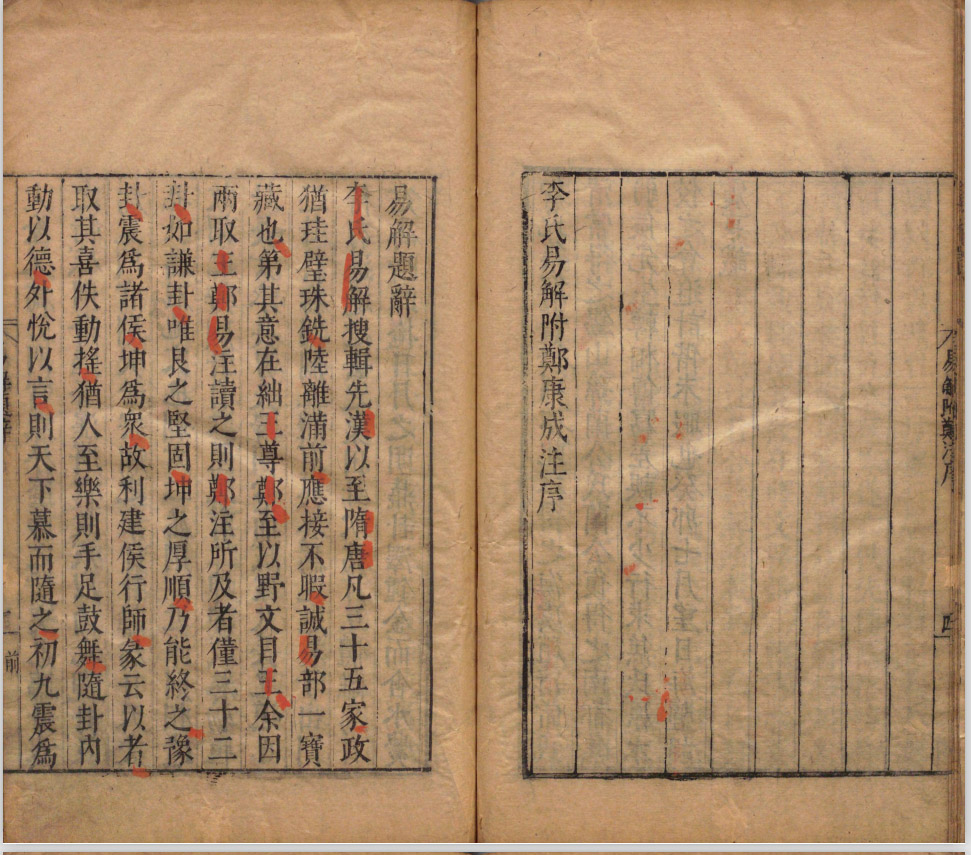 易解附鄭注序
四
李氏易解附鄭康成注序
易解題辭
李氏易解搜輯先漢以至隋唐凡三十五家政
猶珪璧珠銑陸離滿前應接不暇誠易部一寶
藏也第其意在絀王尊鄭至以野文目王余因
兩取王鄭易注讀之則鄭注所及者僅三十二
卦如謙卦唯艮之堅固坤之厚順乃能終之豫
卦震爲諸侯坤爲衆故利建侯行師彖云以者
取其喜佚動搖猶人至樂則手足鼓舞隨卦內
動以德外悅以言則天下慕而隨之初九震爲
一
前